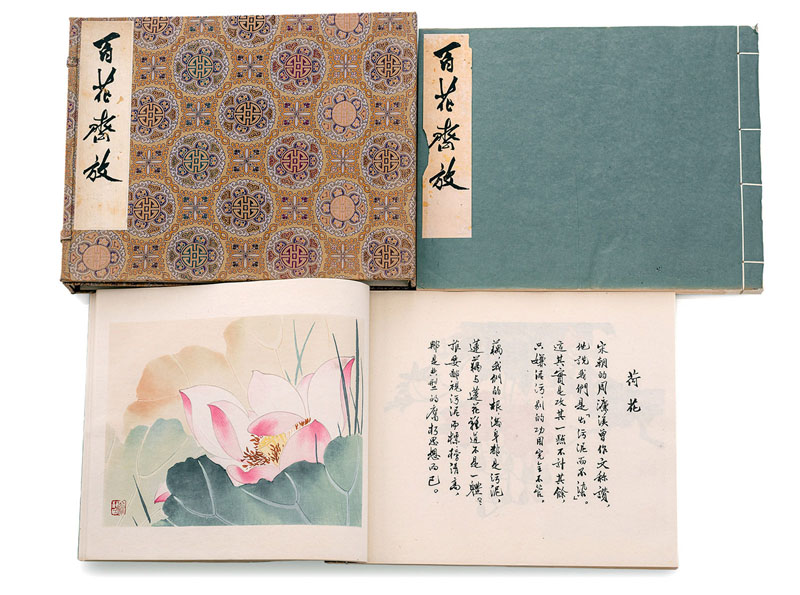 百花齊放
百花齊放
荷花
宋朝的周濂溪曾作文称讚,
他說我們是“出污泥而不染”。
這其實是攻其一點不計其餘,
只嫌泥污別的功用完全不管。
藕,我們的根滿身都是污泥,
蓮藕与蓮花難道不是一體?
誰要鄙視污泥而標榜清高,
那是典型的腐朽思想而已。